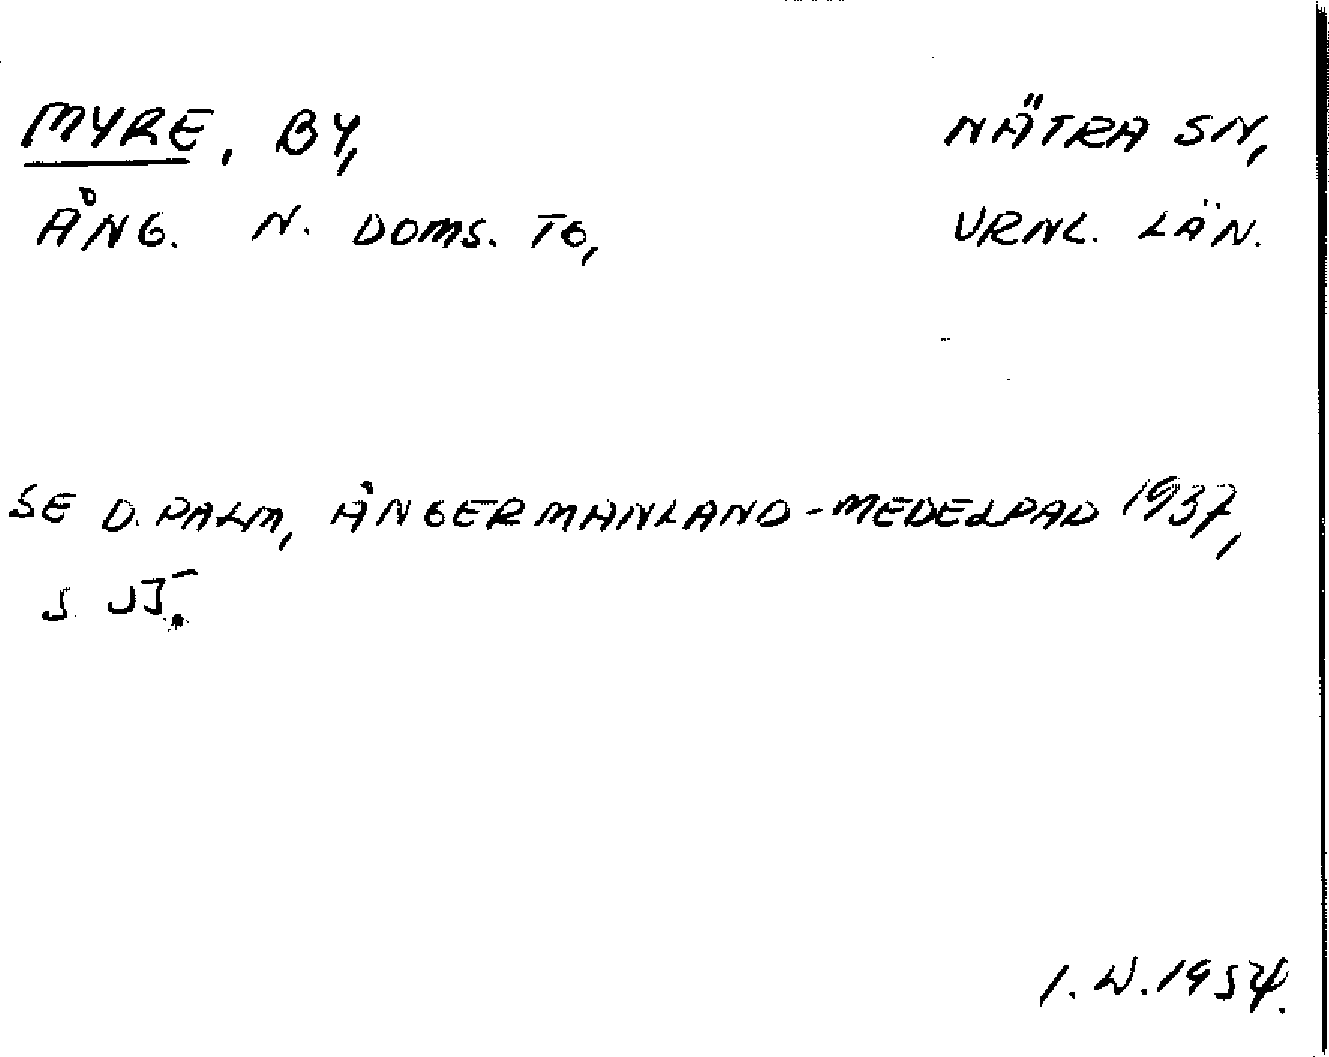 MYRE, BY, NÄTRA SN,
ÅNG. N. DOMS. TG, VRNL. LÄN.
SE D. PALM, ÅNGERMANLAND-MEDELPAD 1937,
S. 55.
I. W. 1954.